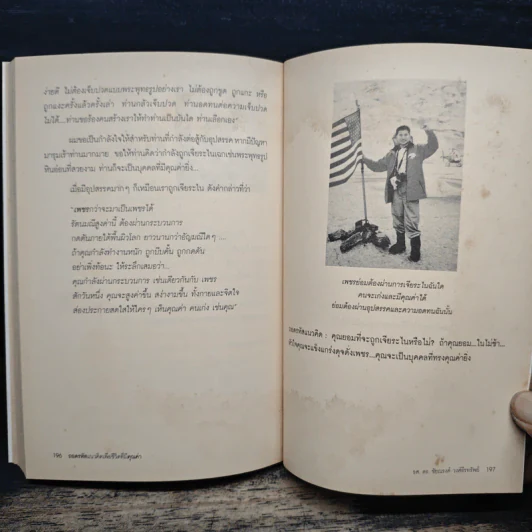 ง่ายดี ไม่ต้องเจ็บปวดแบบพระพุทธรูปอย่างเรา ไม่ต้องถูกขูด ถูกเกาะ หรือ
ถูกแงะครั้งแล้วครั้งเล่า ท่านกลัวเจ็บปวด ท่านอดทนต่อความเจ็บปวด
ไม่ได้...ท่านขอร้องคนสร้างเราให้ทำท่านเป็นบันได ท่านเลือกเอง"
ผมขอเป็นกำลังใจให้สำหรับท่านที่กำลังต่อสู้กับอุปสรรค หากมีปัญหา
มารุมเร้าท่านมากมาย ขอให้ท่านคิดว่ากำลังถูกเจียระไนเฉกเช่นพระพุทธรูป
หินอ่อนที่สวยงาม ท่านก็จะเป็นบุคคลที่มีคุณค่ายิ่ง...
เมื่อมีอุปสรรคมากๆ ก็เหมือนเราถูกเจียระไน ดังคำกล่าวที่ว่า
"เพชรกว่าจะมาเป็นเพชรได้
รัตนมณีสูงค่านี้ ต้องผ่านกระบวนการ
กดดันภายใต้พื้นผิวโลก ยาวนานกว่าอัญมณีใดๆ ...
ถ้าคุณกำลังทำงานหนัก ถูกบีบคั้น ถูกกดดัน
อย่าเพิ่งท้อนะ ให้ระลึกเสมอว่า...
คุณกำลังผ่านกระบวนการ เช่นเดียวกันกับ เพชร
สักวันหนึ่ง คุณจะสูงค่าขึ้น สง่างามขึ้น ทั้งกายและจิตใจ
ส่องประกายสดใสให้ใครๆ เห็นคุณค่า คนเก่ง เช่นคุณ"
196 ถอดรหัสแนวคิดเพื่อชีวิตที่มีคุณค่า
เพชรย่อมต้องผ่านการเจียระไนฉันใด
คนจะเก่งและมีคุณค่าได้
ย่อมต้องผ่านอุปสรรคและความอดทนฉันนั้น
ถอดรหัสแนวคิด : คุณยอมที่จะถูกเจียระไนหรือไม่? ถ้าคุณยอม...ในไม่ช้า...
คุณจะแข็งแกร่งดุจดังเพชร...คุณจะเป็นบุคคลที่ทรงคุณค่ายิ่ง
รศ. ดร. 197